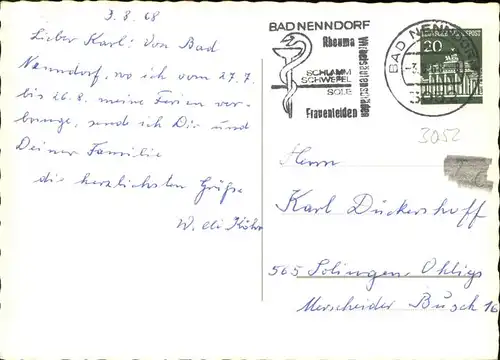 3.8.68
Lieber Karl: Von Bad
Nenndorf, wo ich vom 27.7.
bis 26.8. meine Ferien ver-
bringe, sende ich Dir und
Deiner Familie
die herzlichsten Grüße
W.
BAD NENNDORF
Rheuma
Wirbelsäulenschäden
SCHLAMM
SCHWEFEL
SOLE
Frauenleiden
BAD NENNDORF
20
3052
Herrn
Karl Dückershoff
565 Solingen, Ohligs
Merscheider Busch 16